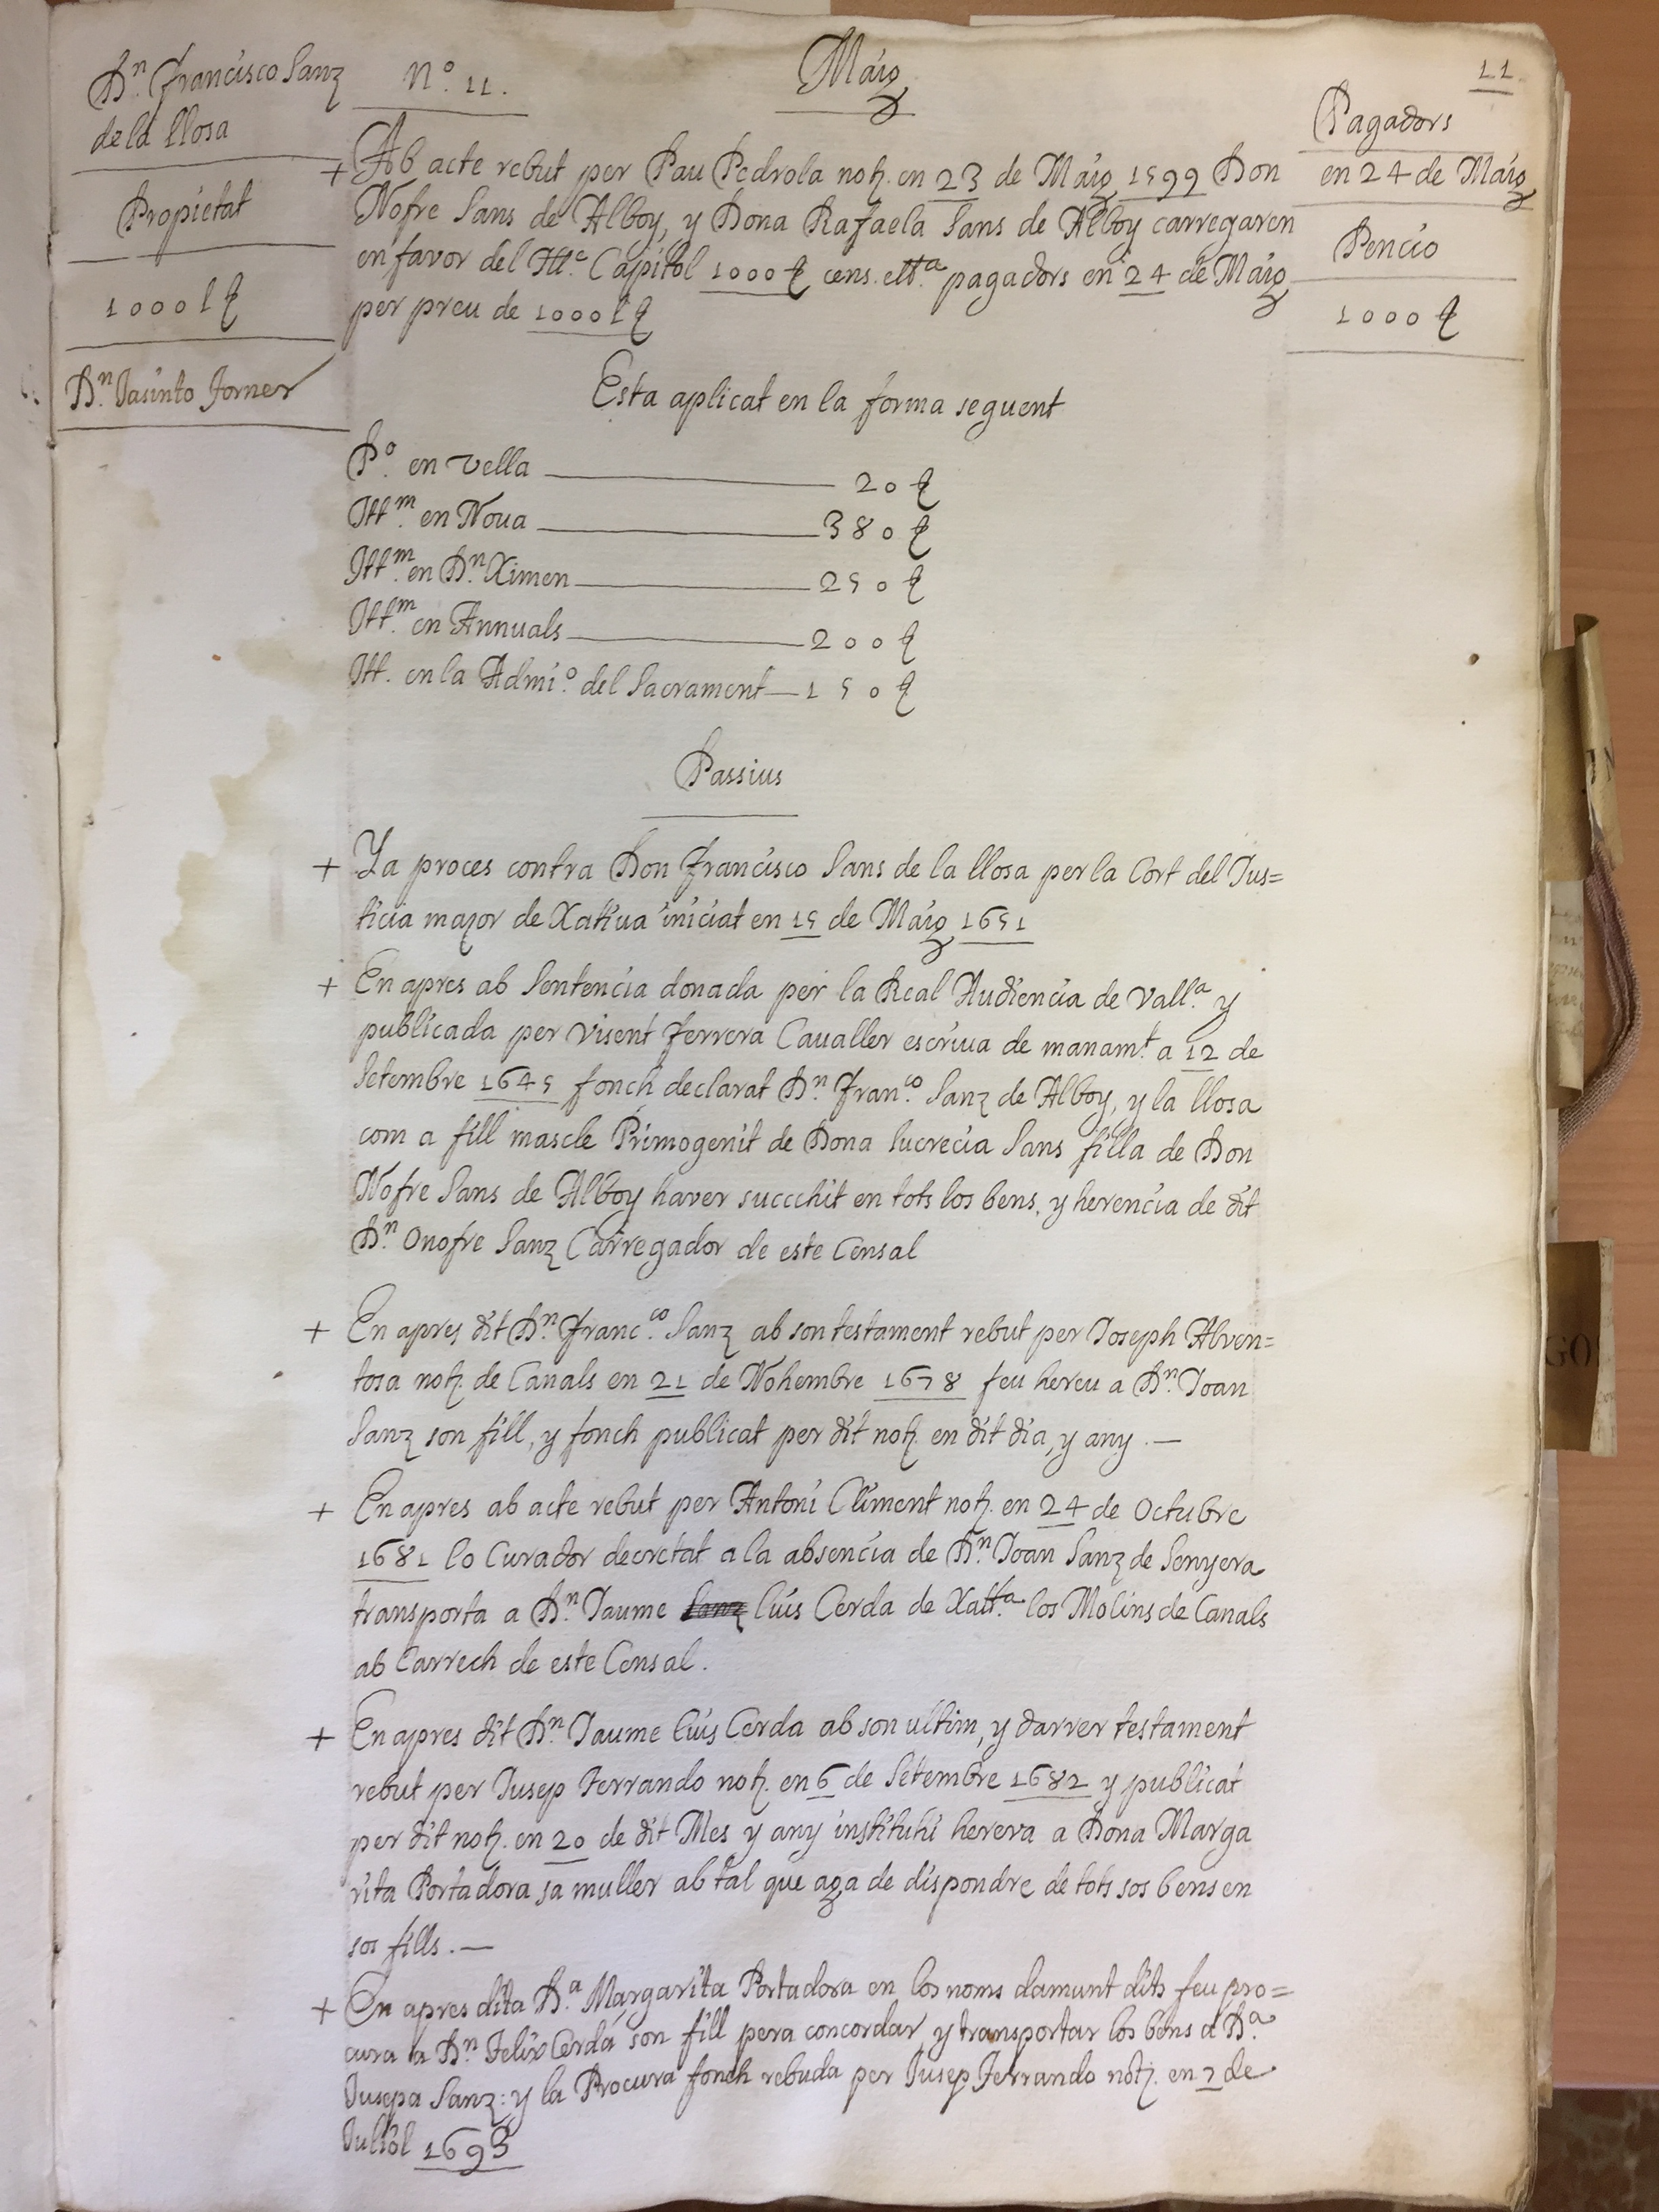 Dn. Francisco Sanz
de la llosa
Propietat
1000 l ȼ
Dn. Jasinto Forner
No. 11.
Maig
11
Pagadors
en 24 de Maig
Pencio
1000 ȼ
+ Ab acte rebut per Pau Pedrola not. en 23 de Maig 1599 Don
Nofre Sans de Alboy, y Dona Rafaela Sans de Alboy carregaren
en favor del Itte. Capitol 1000 ȼ cens. etta. pagadors en 24 de Maig
per preu de 1000 l ȼ
Esta aplicat en la forma seguent
Po. en vella 20 ȼ
Ittm. en Noua 380 ȼ
Ittm. en Dn. Ximen 250 ȼ
Ittm. en Annuals 200 ȼ
Itt. en la Admio. del Sacrament 150 ȼ
Passius
+ Ya proces contra Don Francisco Sans de la llosa per la Cort del Jus=
ticia major de Xatiua iniciat en 15 de Maig 1651
+ En apres ab Sentencia donada per la Real Audiencia de Valla. y
publicada per Visent Ferrera Caualler escriua de manamt. a 12 de
Setembre 1645 fonch declarat Dn. Franco. Sanz de Alboy, y la llosa
com a fill mascle Primogenit de Dona Lucrecia Sans filla de Don
Nofre Sans de Alboy haver succehit en tots los bens, y herencia de dit
Dn. Onofre Sanz Carregador de este Censal
+ En apres dit Dn. Francco. Sanz ab son testament rebut per Joseph Alven=
tosa not. de Canals en 21 de Nohembre 1678 feu hereu a Dn. Joan
Sanz son fill, y fonch publicat per dit not. en dit dia, y any.—
+ En apres ab acte rebut per Antoni Climent not. en 24 de Octubre
1681 lo Curador decretat a la absencia de Dn. Joan Sanz de Senyera
transporta a Dn. Jaume Sanz Luis Cerda de Xatta. los Molins de Canals
ab Carrech de este Censal.
+ En apres dit Dn. Jaume Luis Cerda ab son ultim, y darrer testament
rebut per Jusep Ferrando not. en 6 de Setembre 1682 y publicat
per dit not. en 20 de dit Mes y any instituhi hereva a Dona Marga
rita Portadora sa muller ab tal que aga de dispondre de tots sos bens en
sos fills.—
+ En apres dita Da. Margarita Portadora en los noms damunt dits feu pro=
cura a Dn. Felix Cerda son fill pera concordar, y transportar los bens a Da.
Jusepa Sanz: y la Procura fonch rebuda per Jusep Ferrando not. en 2 de
Juliol 1693